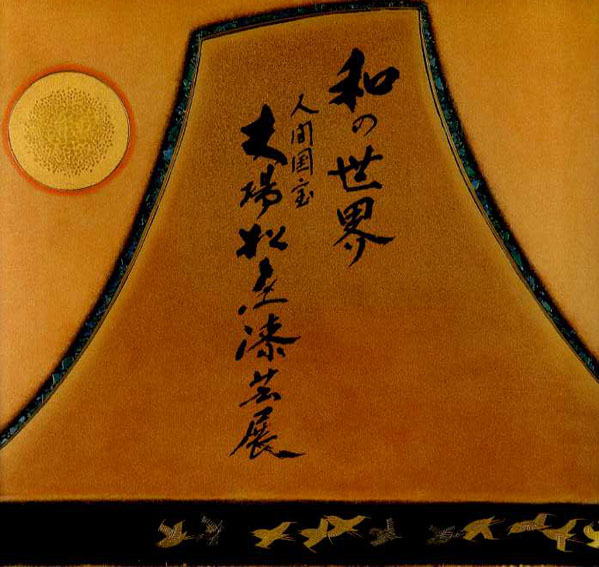 和の世界
人間国宝
大場松魚漆芸展